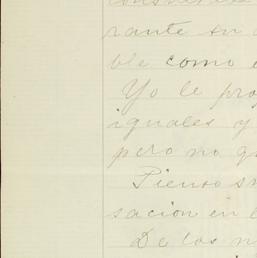 rante su
ble como e
Yo le pro
iguales y
pero no q
Pienso
sacion en l
De los n